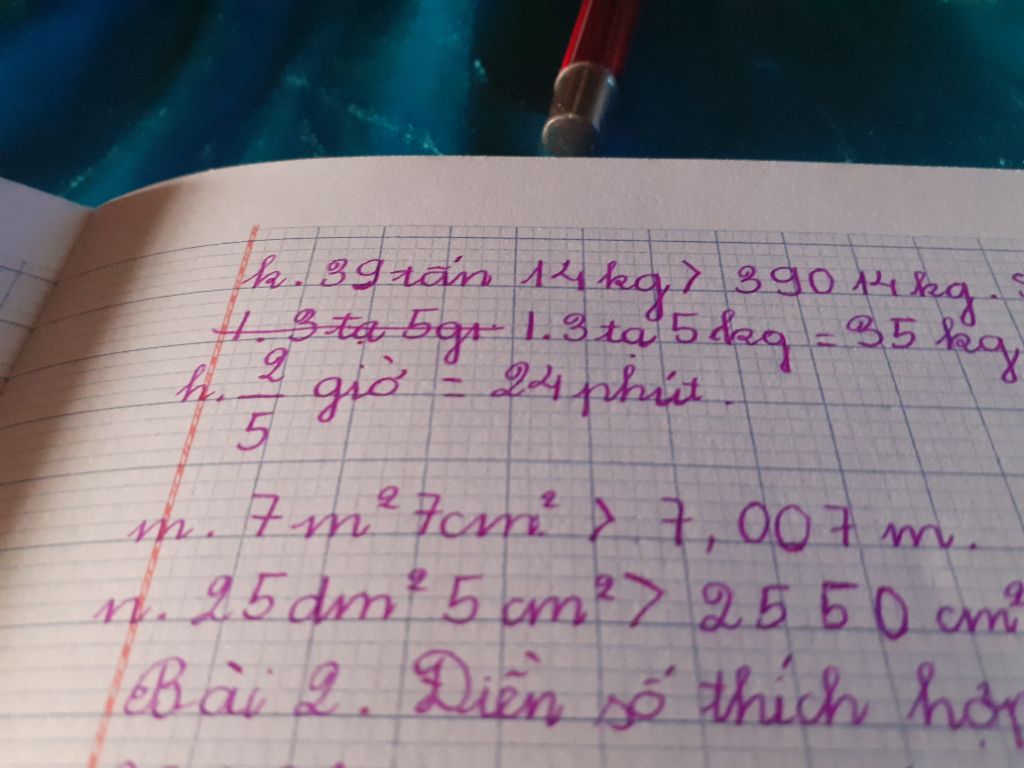 k. 39 tấn 14 kg > 390 14 kg.
1. 3 tạ 5g 1. 3 tạ 5 kg = 35 kg
h. 2/5 giờ = 24 phút.
m. 7m² 7cm² > 7,007 m.
n. 25dm² 5 cm² > 2550 cm²
Bài 2. Điền số thích hợp